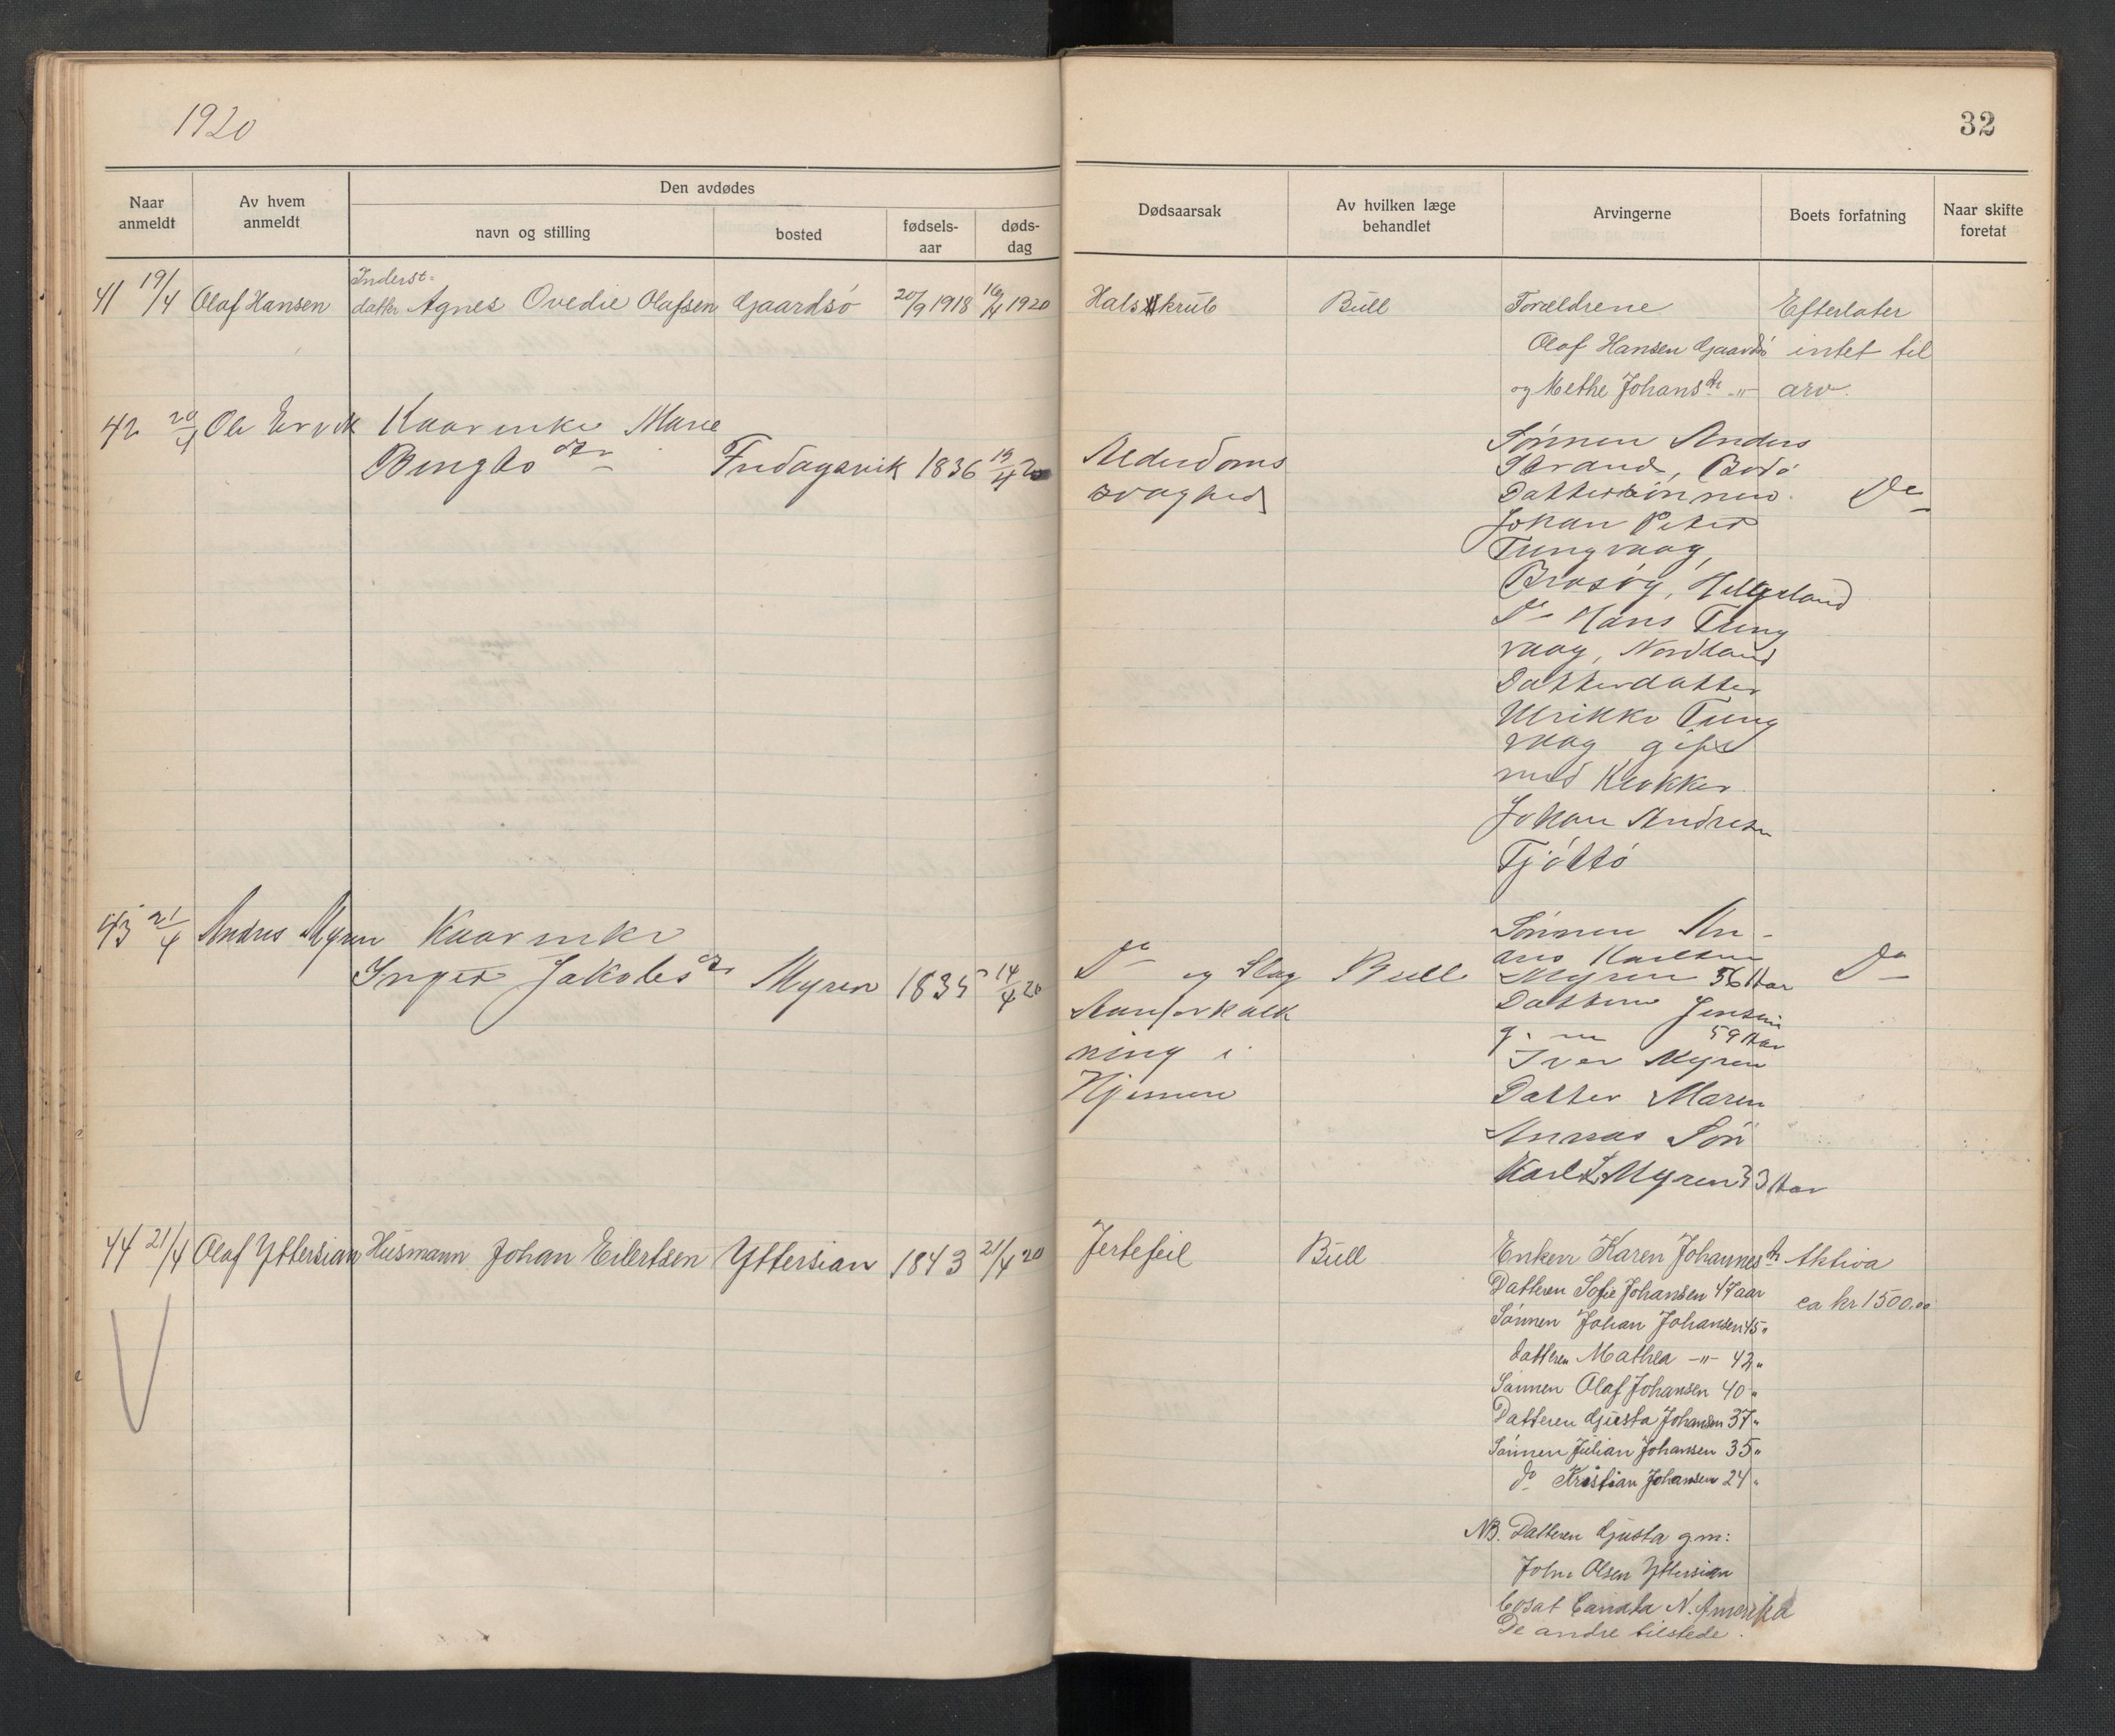 1920
32
Naar anmeldt
Av hvem anmeldt
Den avdødes
navn og stilling
bosted
fødsels-aar
døds-dag
Dødsaarsak
Av hvilken læge behandlet
Arvingerne
Boets forfatning
Naar skifte foretat
41 19/4 Olaf Hansen
Inderst-
datter Agnes Ovedie Olafsen Gaardsö 20/9 1918 16/4 1920
Halskrub
Bull
Forældrene
Olaf Hansen Gaardsö
og Methe Johansdr -"-
Efterlater
intet til
arv.
42 20/4 Ole Ervik
Kaarenke Marie
Bengtsdtr Fredagsvik 1836 19/4 20
Alderdoms
svaghed
Sönnen Anders
Strand, Bodö
Dattersönnen
Johan Peter
Tungvaag,
Brasöy, Helgeland
Do Hans Tung
vaag, Nordland
Datterdatter
Ulrikke Tung
vaag gift
med Klokker
Johan Andresen
Tjöttö
Do
43 21/4 Andreas Myren
Kaarenke
Inger Jakobsdtr Myren 1835 14/4 20
Do og Slag
Aareforkalk
ning i
Hjernen
Bull
Sönnen An-
ars Karlsen
Myren 56 Aar
Datteren Jensine
g. m 59 Aar
Iver Myren
Datter Maren
Annas Sön
Karl Myren 33 Aar
Do
44 21/4 Olaf Yttersian Husmann Johan Eilertsen Yttersian 1843 21/4 20
Jertefeil
Bull
Enken Karen Johannesdr
Datteren Sofie Johansen 47 aar
Sönnen Johan Johansen 45 "
datteren Mathea -"- 42 "
Sönnen Olaf Johansen 40 "
Datteren Gjusta Johansen 37 "
Sönnen Julian Johansen 35 "
do Kristian Johansen 24 "
NB. Datteren Gjusta gm:
John Olsen Yttersian
bosat Canada N. Amerika
De andre tilstede.
Aktiva
ca kr 1500.00